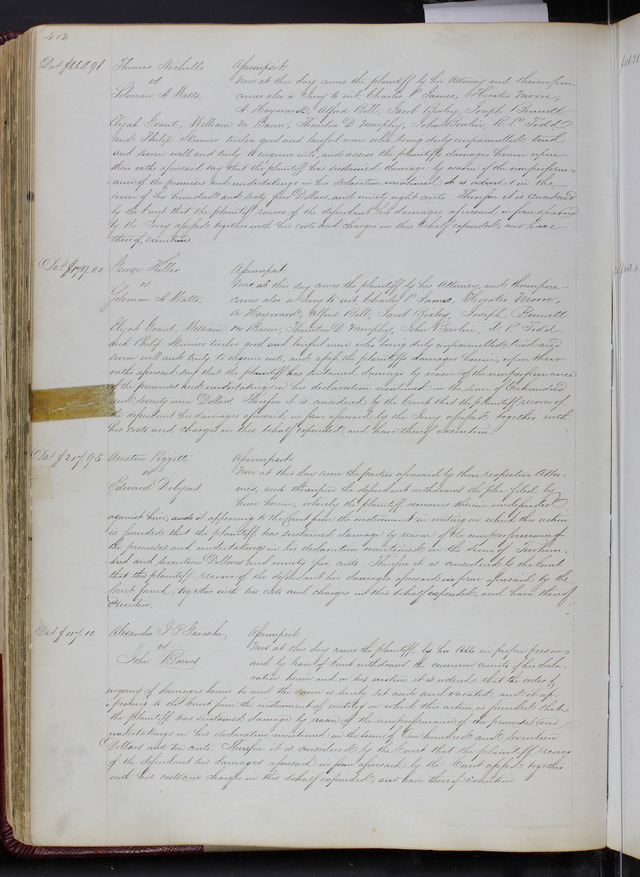 412
Dad $666.98 Thomas Nicholls Assumpsit
vs Now at this day comes the plaintiff by his Attorney and thereupon
Solomon A Watts. comes also a Jury to wit, Charles P James, Horatio Moore,
A Hayward, Alfred Bell, Jacob Bixby, Joseph Bennett
Elijah Grant, William M Bacon, Thornton D Murphy, John Bowlin, R P Todd
and Philip Skinner twelve good and lawful men who being duly empannelled, tried
and sworn well and truly to enquire into, and assess the plaintiffs damages herein upon
their oaths aforesaid say that the plaintiff has sustained damage by reason of the nonperform-
ance of the promises and undertakings in his declaration mentioned in the
sum of Six hundred and sixty Dollars and ninety eight cents. Therefore it is considered
by the Court that the plaintiff recover of the defendant his damages aforesaid in form aforesaid
by the Jury assessed together with his costs and charges in this behalf expended and have
thereof execution
Dad $179.00 George Heller Assumpsit
vs Now at this day comes the plaintiff by his Attorney, and thereupon
Solomon A Watts. comes also a Jury to wit Charles P James, Horatio Moore,
A Hayward, Alfred Bell, Jacob Bixby, Joseph Bennett
Elijah Grant, William M Bacon, Thornton D Murphy, John Bowlin, R P Todd
and Philip Skinner twelve good and lawful men who being duly empannelled tried and
sworn well and truly to enquire into, and assess the plaintiffs damages herein, upon their
oaths aforesaid say that the plaintiff has sustained damage by reason of the nonperformance
of the promises and undertakings in his declaration mentioned in the sum of One hundred
and seventy nine Dollars. Therefore it is considered by the Court that the plaintiff recover of
the defendant his damages aforesaid in form aforesaid by the Jury assessed together with
his costs and charges in this behalf expended, and have thereof execution.
Dad $217.95 Austin Piggott Assumpsit
vs Now at this day come the parties aforesaid by their respective Attor-
Edward Dobyns nies, and thereupon the defendant withdraws the plea filed by
him herein, whereby the plaintiff remains herein undefended
against him, and it appearing to the Court from the instrument in writing on which this action
is founded that the plaintiff has sustained damage by reason of the nonperformance of
the promises and undertakings in his declaration mentioned in the sum of Two hun-
dred and seventeen Dollars and ninety five cents. Therefore it is considered by the Court
that the plaintiff recover of the defendant his damages aforesaid in form aforesaid by the
Court found, together with his costs and charges in this behalf expended, and have thereof
execution.
Dad $117.10 Alexander J P Garesche, Assumpsit
vs Now at this day comes the plaintiff, by his Atto in proper person,
John Barnes and by leave of Court withdraws the common counts of his decla-
ration herein and on his motion it is ordered that the order of
inquiry of damages herein be and the same is hereby set aside and vacated, and it ap-
pearing to the Court from the instrument of writing on which this action is founded that
the plaintiff has sustained damage by reason of the nonperformance of the promises and
undertakings in his declaration mentioned in the sum of One hundred and seventeen
Dollars and ten cents. Therefore it is considered by the Court that the plaintiff recover
of the defendant his damages aforesaid in form aforesaid by the Court assessed together
with his costs and charges in this behalf expended, and have thereof execution